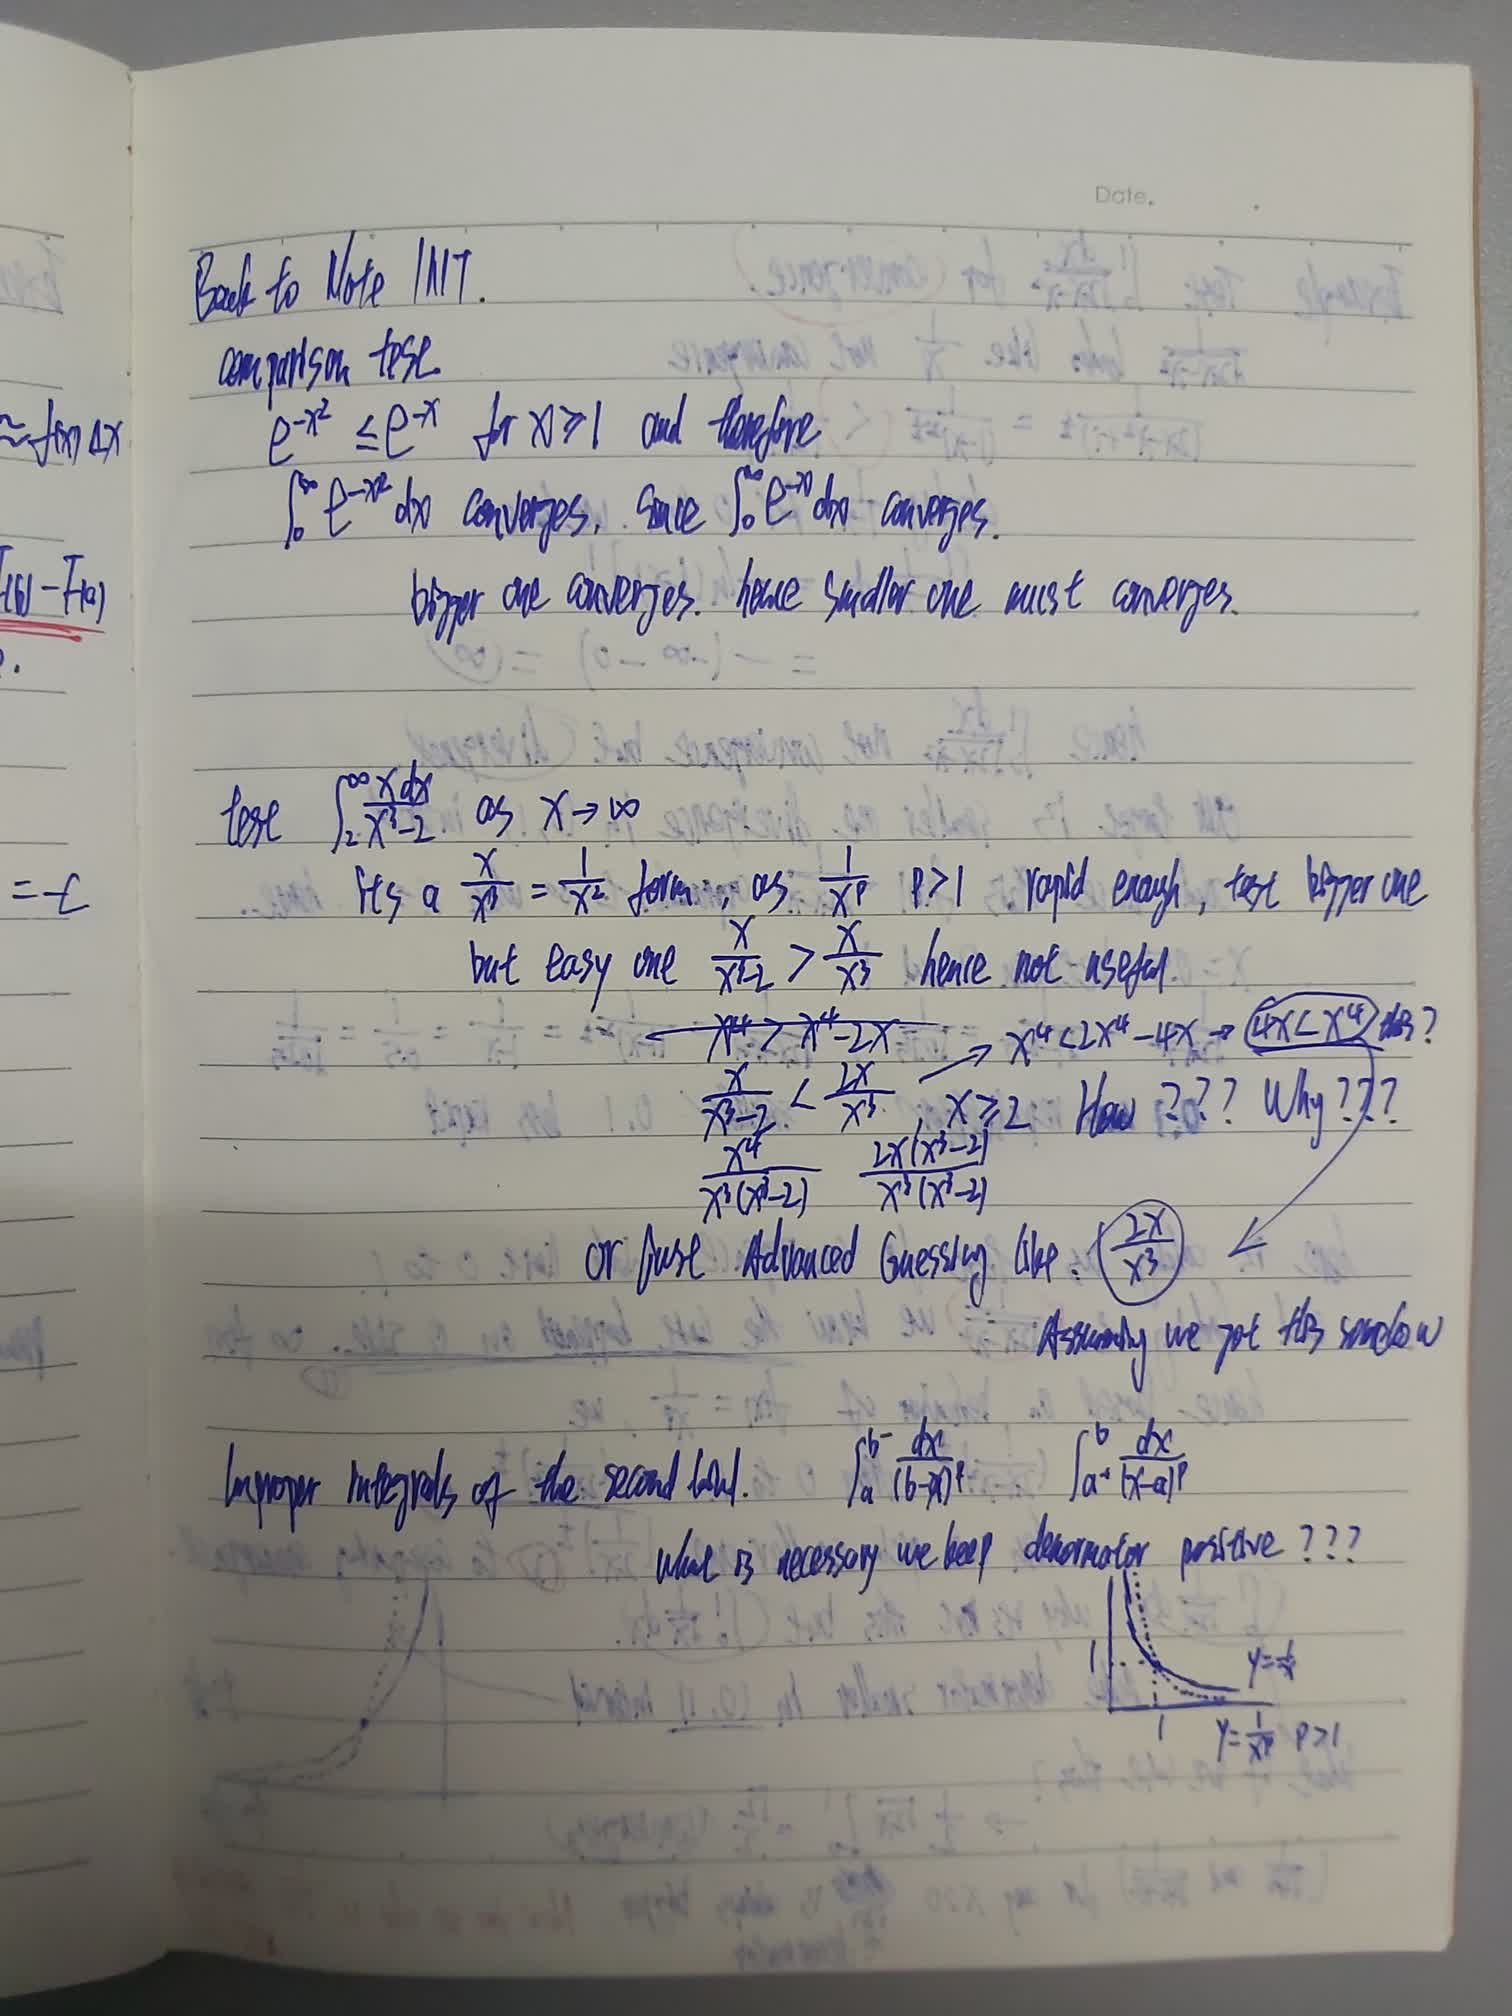 Date.
Back to Note MIT.
comparison test.
≈ f(x) Δx
e^{-x²} ≤ e^{-x} for x ≥ 1 and therefore
∫₀^∞ e^{-x²} dx converges, since ∫₀^∞ e^{-x} dx converges.
F(b) - F(a)
bigger one converges. hence smaller one must converges.
test ∫₂^∞ x dx / (x³-2) as x → ∞
= -c
its a x/x³ = 1/x² form, as 1/x^p p > 1 rapid enough, test bigger one
but easy one x/(x³-2) > x/x³ hence not useful.
x⁴ > x⁴ - 2x
x⁴ < 2x⁴ - 4x → 4x < x⁴ this?
x/(x³-2) < 2x/x³, x ≥ 2 How??? Why???
x⁴/(x³(x³-2)) 2x(x³-2)/(x³(x³-2))
or just Advanced Guessing like: 2x/x³
Assuming we got this somehow
Improper integrals of the second kind. ∫ₐ^{b-} dx/(b-x)^p ∫_{a+}^b dx/(x-a)^p
what is necessary we keep denormator positive ???
1
y = 1/x
1
y = 1/x^p p > 1